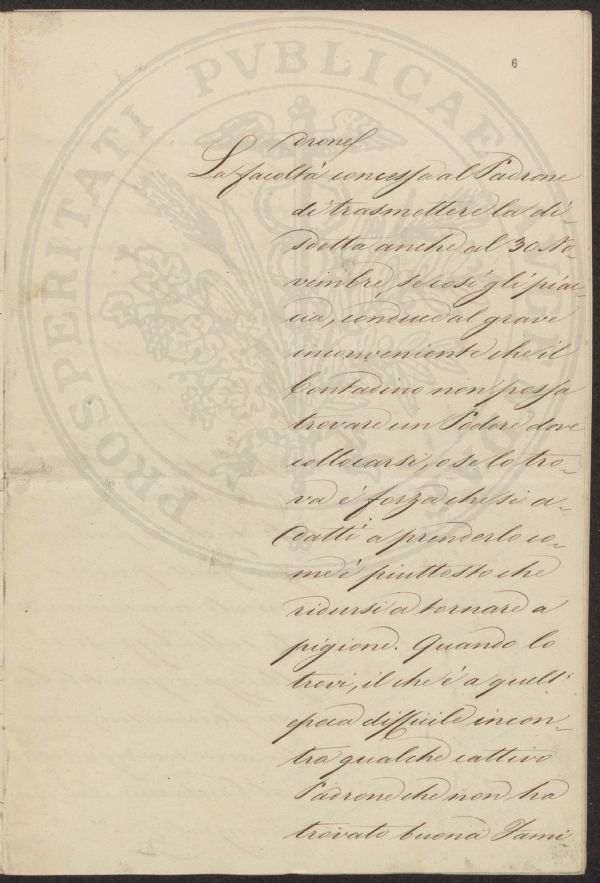 6
drone.
La facoltà concessa al Padrone
di trasmettere la di-
sdetta anche al 30 No-
vembre, se così gli piac-
cia, conduce al grave
inconveniente che il
Contadino non possa
trovare un Podere dove
collocarsi, o se lo tro-
va é forza che si a-
datti a prenderlo co-
m'é piuttosto che
ridursi a tornare a
pigione. Quando lo
trovi, il che é a quell'
epoca difficile incon-
tra qualche cattivo
Padrone che non ha
trovato buona Fami-
PROSPERITATI PVBLICAE